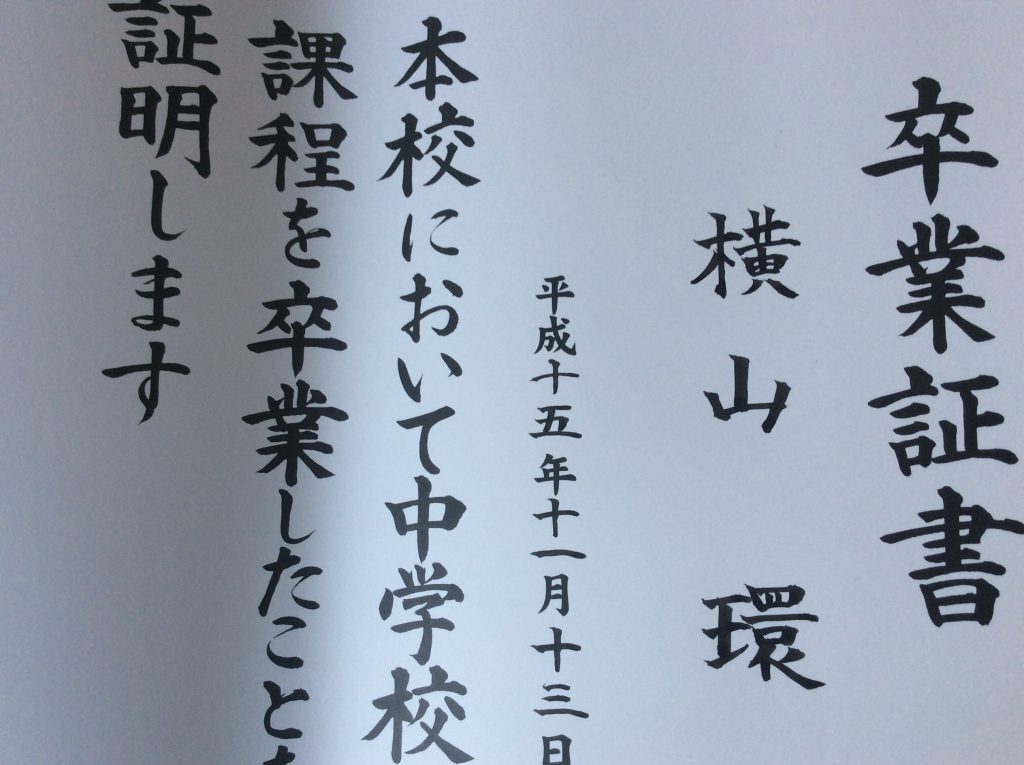 卒業証書
横山 環
平成十五年十一月十三日
本校において中学校
課程を卒業したことを
証明します